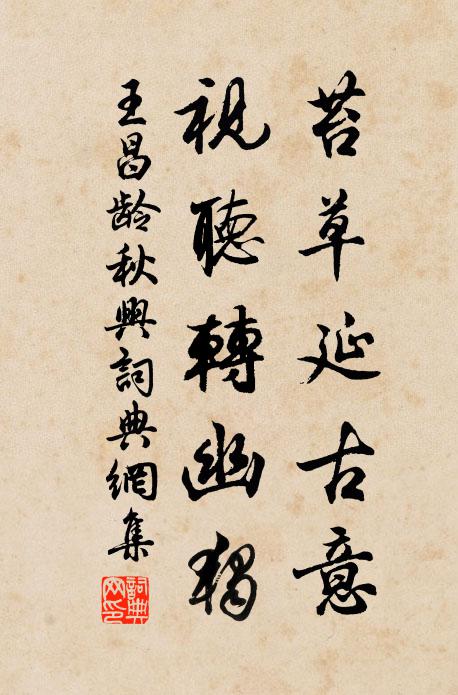 苔草延古意
視聽轉幽獨
王昌龄秋興詞典網集
詞典
网印